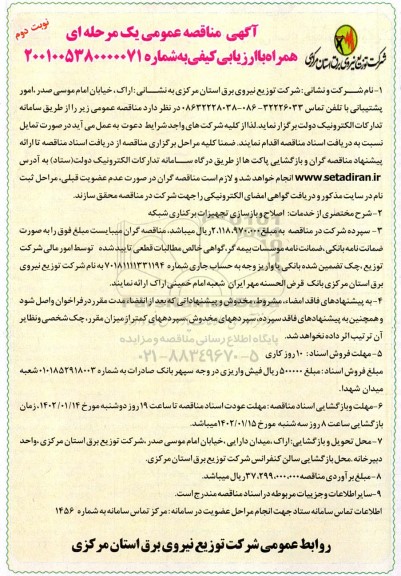 نوبت دوم
آگهی مناقصه عمومی یک مرحله ای
همراه با ارزیابی کیفی به شماره ۲۰۰۱۰۰۵۳۸۰۰۰۰۰۷۱
شرکت توزیع نیروی برق استان مرکزی
۱- نام شرکت و نشانی: شرکت توزیع نیروی برق استان مرکزی به نشانی: اراک، خیابان امام موسی صدر، امور
پشتیبانی با تلفن تماس ۳۲۲۲۶۰۳۳-۰۸۶ ۰۸۶۳۲۲۲۸۰۳۸ در نظر دارد مناقصه عمومی زیر را از طریق سامانه
تدارکات الکترونیک دولت برگزار نماید. لذا از کلیه شرکت های واجد شرایط دعوت به عمل می آید در صورت تمایل
نسبت به دریافت اسناد مناقصه اقدام نمایند. ضمنا کلیه مراحل برگزاری مناقصه از دریافت اسناد مناقصه تا ارائه
پیشنهاد مناقصه گران و بازگشایی پاکت ها از طریق درگاه سامانه تدارکات الکترونیک دولت (ستاد) به آدرس
www.setadiran.ir انجام خواهد شد و لازم است مناقصه گران در صورت عدم عضویت قبلی، مراحل ثبت
نام در سایت مذکور و دریافت گواهی امضای الکترونیکی را جهت شرکت در مناقصه محقق سازند.
۲- شرح مختصری از خدمات: اصلاح و بازسازی تجهیزات برکناری شبکه
۳- سپرده شرکت در مناقصه به مبلغ ۲،۱۱۸،۹۷۰،۰۰۰ ریال میباشد. مناقصه گران میبایست مبلغ فوق را به صورت
ضمانت نامه بانکی، ضمانت نامه موسسات بیمه گر، گواهی خالص مطالبات قطعی تایید شده توسط امور مالی شرکت
توزیع، چک تضمین شده بانکی یا واریز وجه به حساب جاری شماره ۷۰۱۸۱۱۱۱۳۳۱۱۹۴ به نام شرکت توزیع نیروی
برق استان مرکزی بانک قرض الحسنه مهر ایران شعبه امام خمینی اراک ارائه نمایند.
۴- به پیشنهادهای فاقد امضاء، مشروط، مخدوش و پیشنهاداتی که بعد از انقضاء مدت مقرر در فراخوان واصل شود
و همچنین به پیشنهادهای فاقد سپرده، سپرده‌های مخدوش، سپرده‌های کمتر از میزان مقرر، چک شخصی و نظایر
آن ترتیب اثر داده نخواهد شد.
۵- مهلت فروش اسناد: ۱۰ روز کاری
مبلغ فروش اسناد: مبلغ ۵۰۰۰۰۰ ریال فیش واریزی در وجه سپهر بانک صادرات به شماره ۰۱۰۱۸۵۲۹۱۸۰۰۳ شعبه
میدان شهدا.
۶- مهلت و بازگشایی اسناد مناقصه: مهلت عودت اسناد مناقصه تا ساعت ۱۹ روز دوشنبه مورخ ۱۴۰۲/۰۱/۱۴، زمان
بازگشایی ساعت ۸ روز سه شنبه مورخ ۱۴۰۲/۰۱/۱۵ میباشد.
۷- محل تحویل و بازگشایی: اراک، میدان دارایی، خیابان امام موسی صدر، شرکت توزیع برق استان مرکزی، واحد
دبیرخانه. محل بازگشایی سالن کنفرانس شرکت توزیع برق استان مرکزی.
۸- مبلغ برآوردی مناقصه ۳۷،۲۹۹،۰۰۰،۰۰۰ ریال میباشد.
۹- سایر اطلاعات و جزییات مربوطه در اسناد مناقصه مندرج است.
اطلاعات تماس سامانه ستاد جهت انجام مراحل عضویت در سامانه: مرکز تماس سامانه به شماره ۱۴۵۶
روابط عمومی شرکت توزیع نیروی برق استان مرکزی
پایگاه اطلاع رسانی مناقصه و مزایده
۰۲۱-۸۸۳۴۹۶۷۰-۵